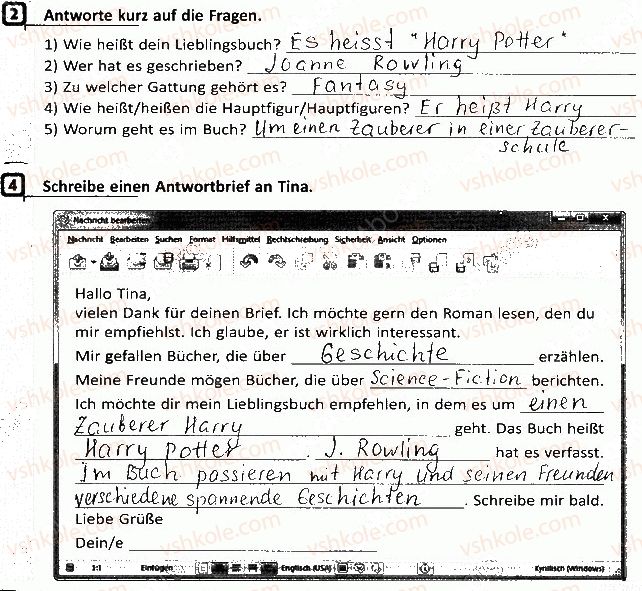 2 Antworte kurz auf die Fragen.
1) Wie heißt dein Lieblingsbuch? Es heisst "Harry Potter"
2) Wer hat es geschrieben? Joanne Rowling
3) Zu welcher Gattung gehört es? Fantasy
4) Wie heißt/heißen die Hauptfigur/Hauptfiguren? Er heißt Harry
5) Worum geht es im Buch? Um einen Zauberer in einer Zauberer-
schule
4 Schreibe einen Antwortbrief an Tina.
Nachricht bearbeiten
Nachricht Bearbeiten Suchen Format Hilfsmittel Rechtschreibung Sicherheit Ansicht Optionen
Hallo Tina,
vielen Dank für deinen Brief. Ich möchte gern den Roman lesen, den du
mir empfiehlst. Ich glaube, er ist wirklich interessant.
Mir gefallen Bücher, die über Geschichte erzählen.
Meine Freunde mögen Bücher, die über Science-Fiction berichten.
Ich möchte dir mein Lieblingsbuch empfehlen, in dem es um einen
Zauberer Harry geht. Das Buch heißt
Harry Potter. J. Rowling hat es verfasst.
Im Buch passieren mit Harry und seinen Freunden
verschiedene spannende Geschichten. Schreibe mir bald.
Liebe Grüße
Dein/e
1:1 Einfügen Englisch (USA) Kyrillisch (Windows)
vshkole.com